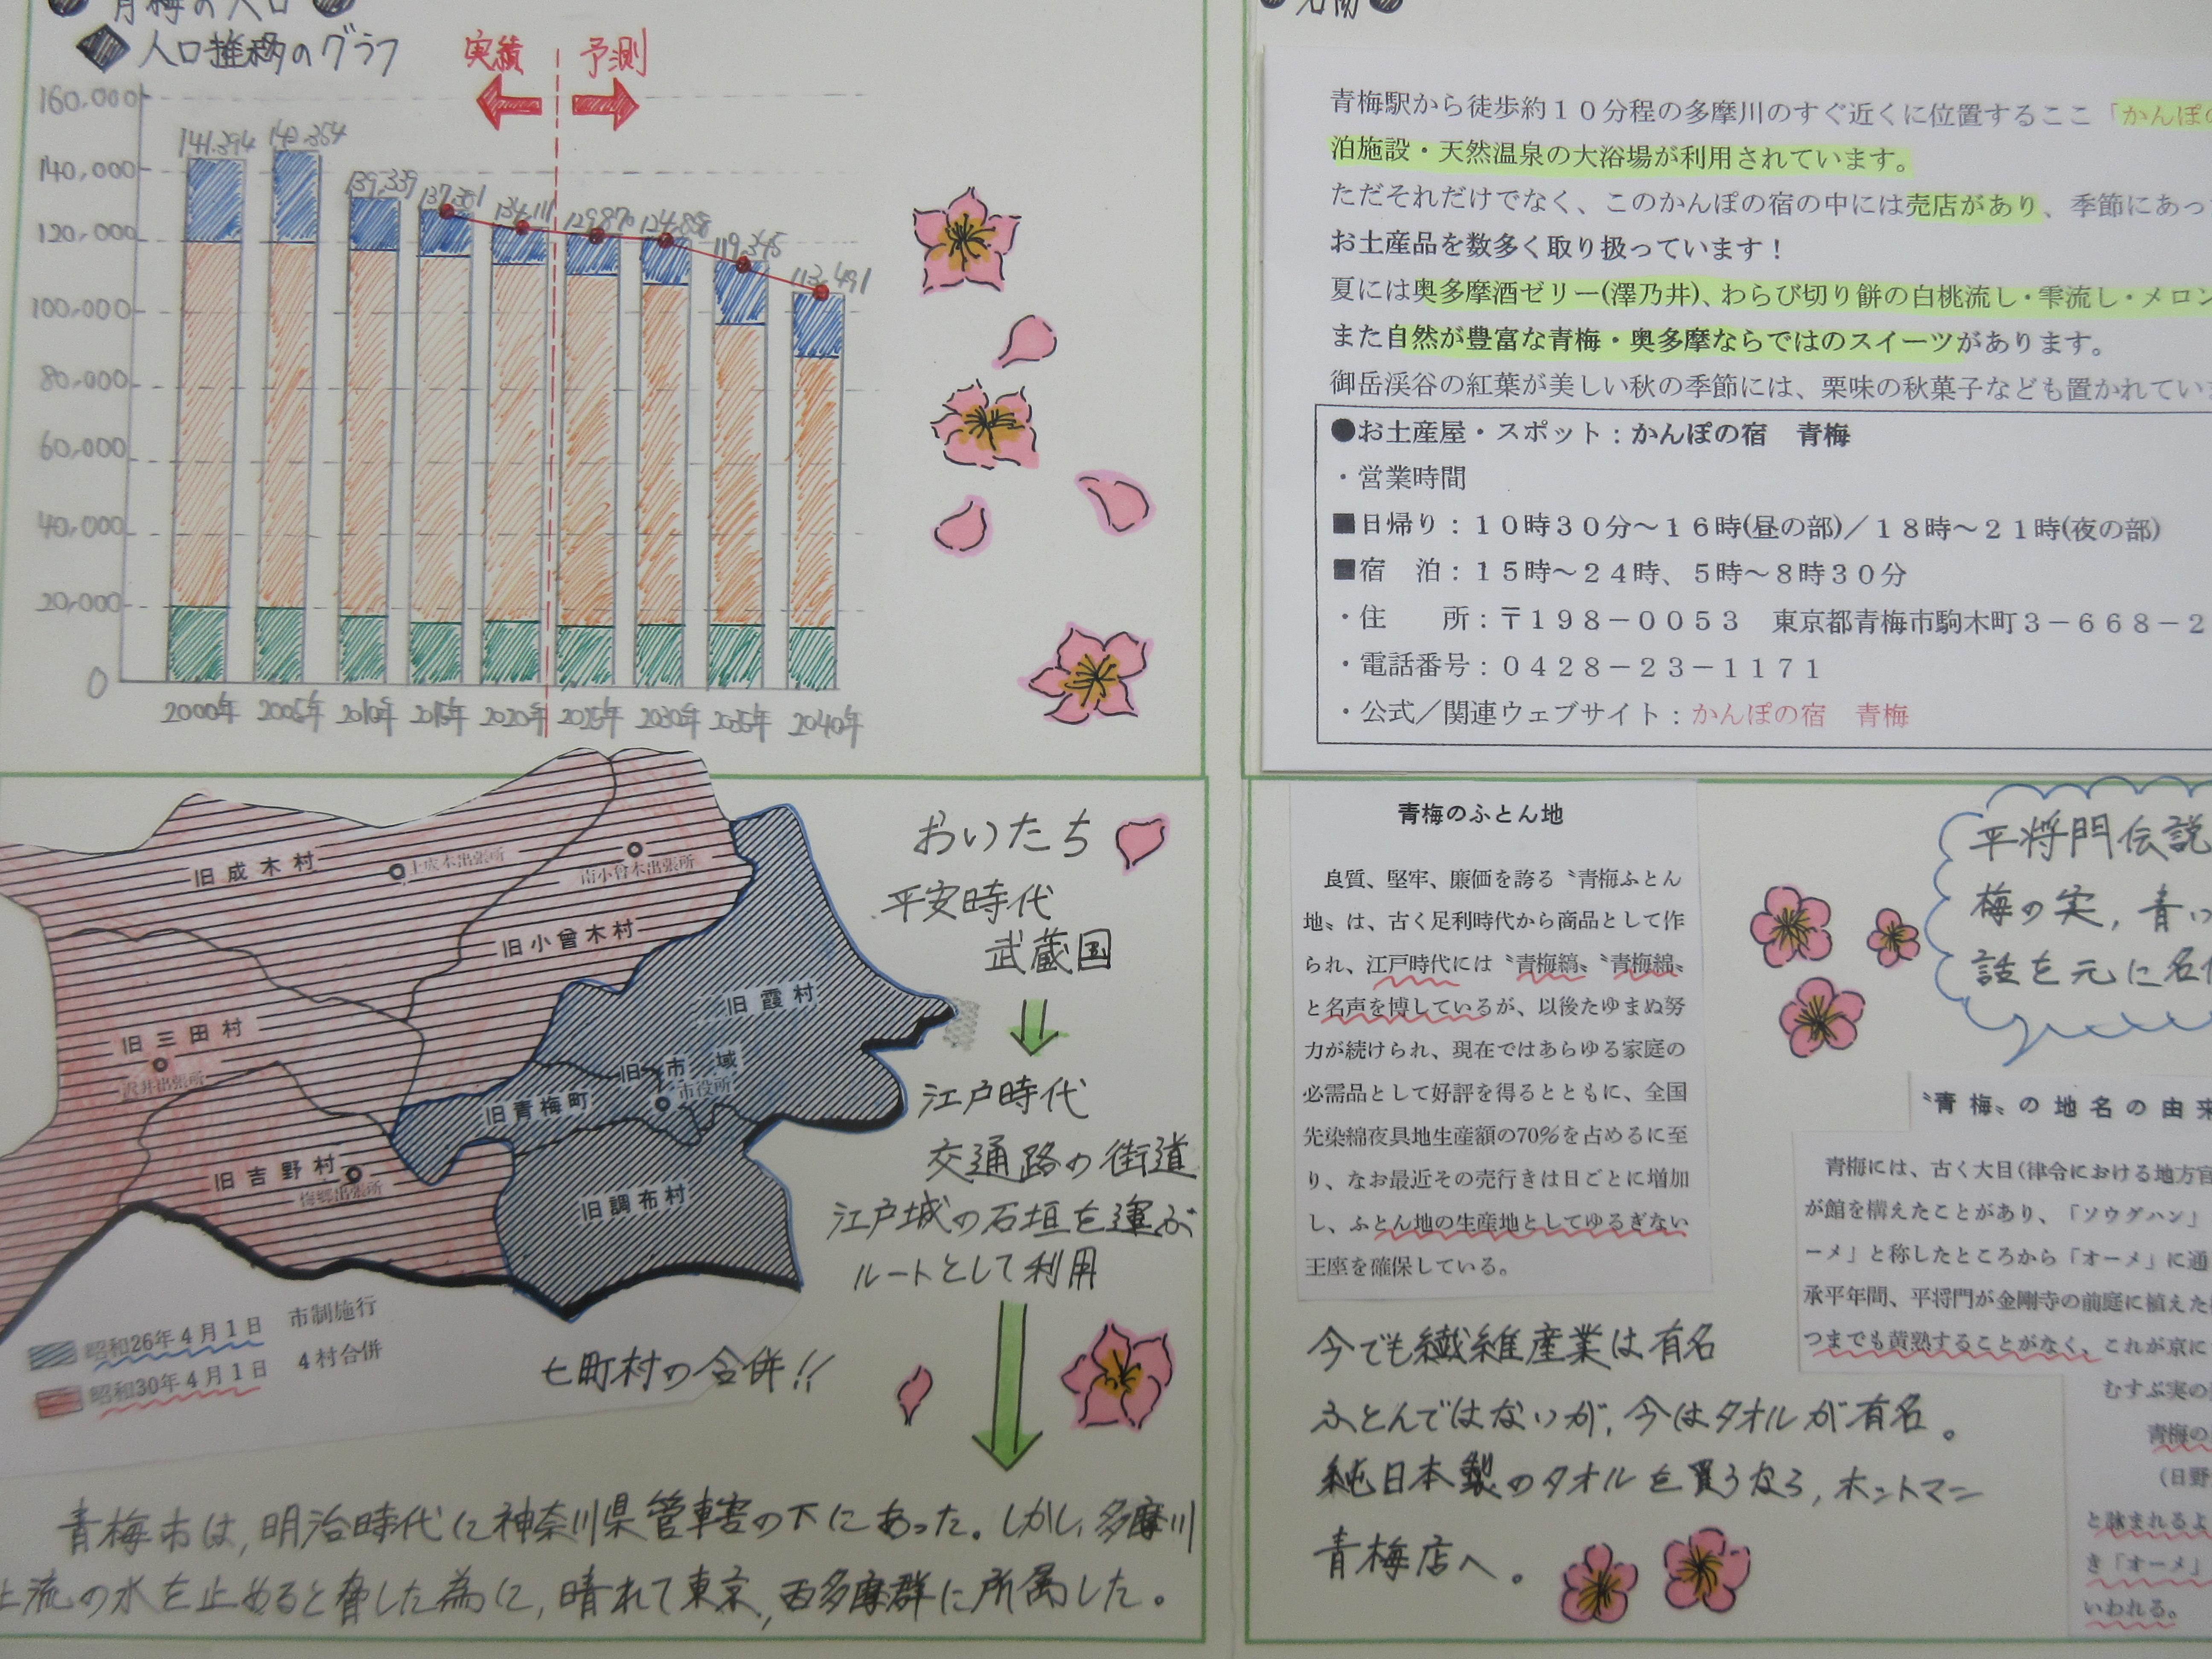 青梅の人口
人口推移のグラフ
実績
予測
160,000
140,000
120,000
100,000
80,000
60,000
40,000
20,000
0
141,394
142,354
139,339
137,381
134,111
129,870
124,858
119,345
113,491
2000年 2005年 2010年 2015年 2020年 2025年 2030年 2035年 2040年
旧成木村
上成木出張所
南小曾木出張所
旧小曾木村
旧三田村
沢井出張所
旧霞村
旧市域
市役所
旧青梅町
旧吉野村
梅郷出張所
旧調布村
昭和26年4月1日 市制施行
昭和30年4月1日 4村合併
七町村の合併!!
おいたち
平安時代
武蔵国
江戸時代
交通路の街道
江戸城の石垣を運ぶ
ルートとして利用
青梅市は,明治時代に神奈川県管轄の下にあった。しかし,多摩川
上流の水を止めると脅した為に,晴れて東京,西多摩群に所属した。
名物
青梅駅から徒歩約10分程の多摩川のすぐ近くに位置するここ「かんぽの
泊施設・天然温泉の大浴場が利用されています。
ただそれだけでなく、このかんぽの宿の中には売店があり、季節にあっ
お土産品を数多く取り扱っています!
夏には奥多摩酒ゼリー(澤乃井)、わらび切り餅の白桃流し・雫流し・メロン
また自然が豊富な青梅・奥多摩ならではのスイーツがあります。
御岳渓谷の紅葉が美しい秋の季節には、栗味の秋菓子なども置かれてい
●お土産屋・スポット:かんぽの宿 青梅
・営業時間
■日帰り:10時30分~16時(昼の部)/18時~21時(夜の部)
■宿 泊:15時~24時、5時~8時30分
・住 所:〒198-0053 東京都青梅市駒木町3-668-2
・電話番号:0428-23-1171
・公式/関連ウェブサイト:かんぽの宿 青梅
青梅のふとん地
良質、堅牢、廉価を誇る〝青梅ふとん
地〟は、古く足利時代から商品として作
られ、江戸時代には〝青梅縞〟〝青梅綿〟
と名声を博しているが、以後たゆまぬ努
力が続けられ、現在ではあらゆる家庭の
必需品として好評を得るとともに、全国
先染綿夜具地生産額の70%を占めるに至
り、なお最近その売行きは日ごとに増加
し、ふとん地の生産地としてゆるぎない
王座を確保している。
今でも繊維産業は有名
ふとんではないが,今はタオルが有名。
純日本製のタオルを買うなら,ホットマン
青梅店へ。
平将門伝説
梅の実,青い
話を元に名
〝青梅〟の地名の由来
青梅には、古く大目(律令における地方官
が館を構えたことがあり、「ソウグハン」
ーメ」と称したところから「オーメ」に通
承平年間、平将門が金剛寺の前庭に植えた
つまでも黄熟することがなく、これが京に
むすぶ実の
青梅の
(日野
と詠まれるよ
き「オーメ」
いわれる。